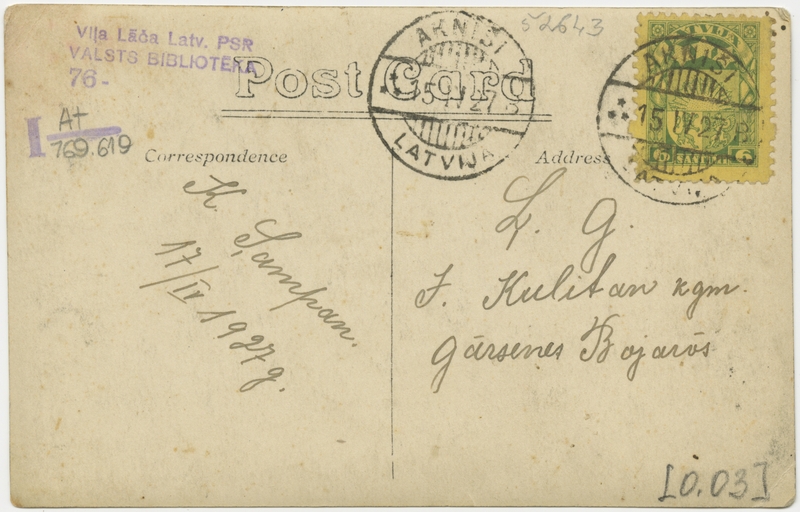 Viļa Lāča Latv. PSR
VALSTS BIBLIOTĒKA
76-
I
At
769.619
52643
Post Card
AKNĪSI
15 IV 27 B
LATVIJA
LATVIJA
AKNĪSI
15 IV 27 B
Correspondence
Address
K. Šampan.
17/IV 1927 g.
L. G.
J. Kulitan kgm.
Gārsenes Bojarōs
[0.03]